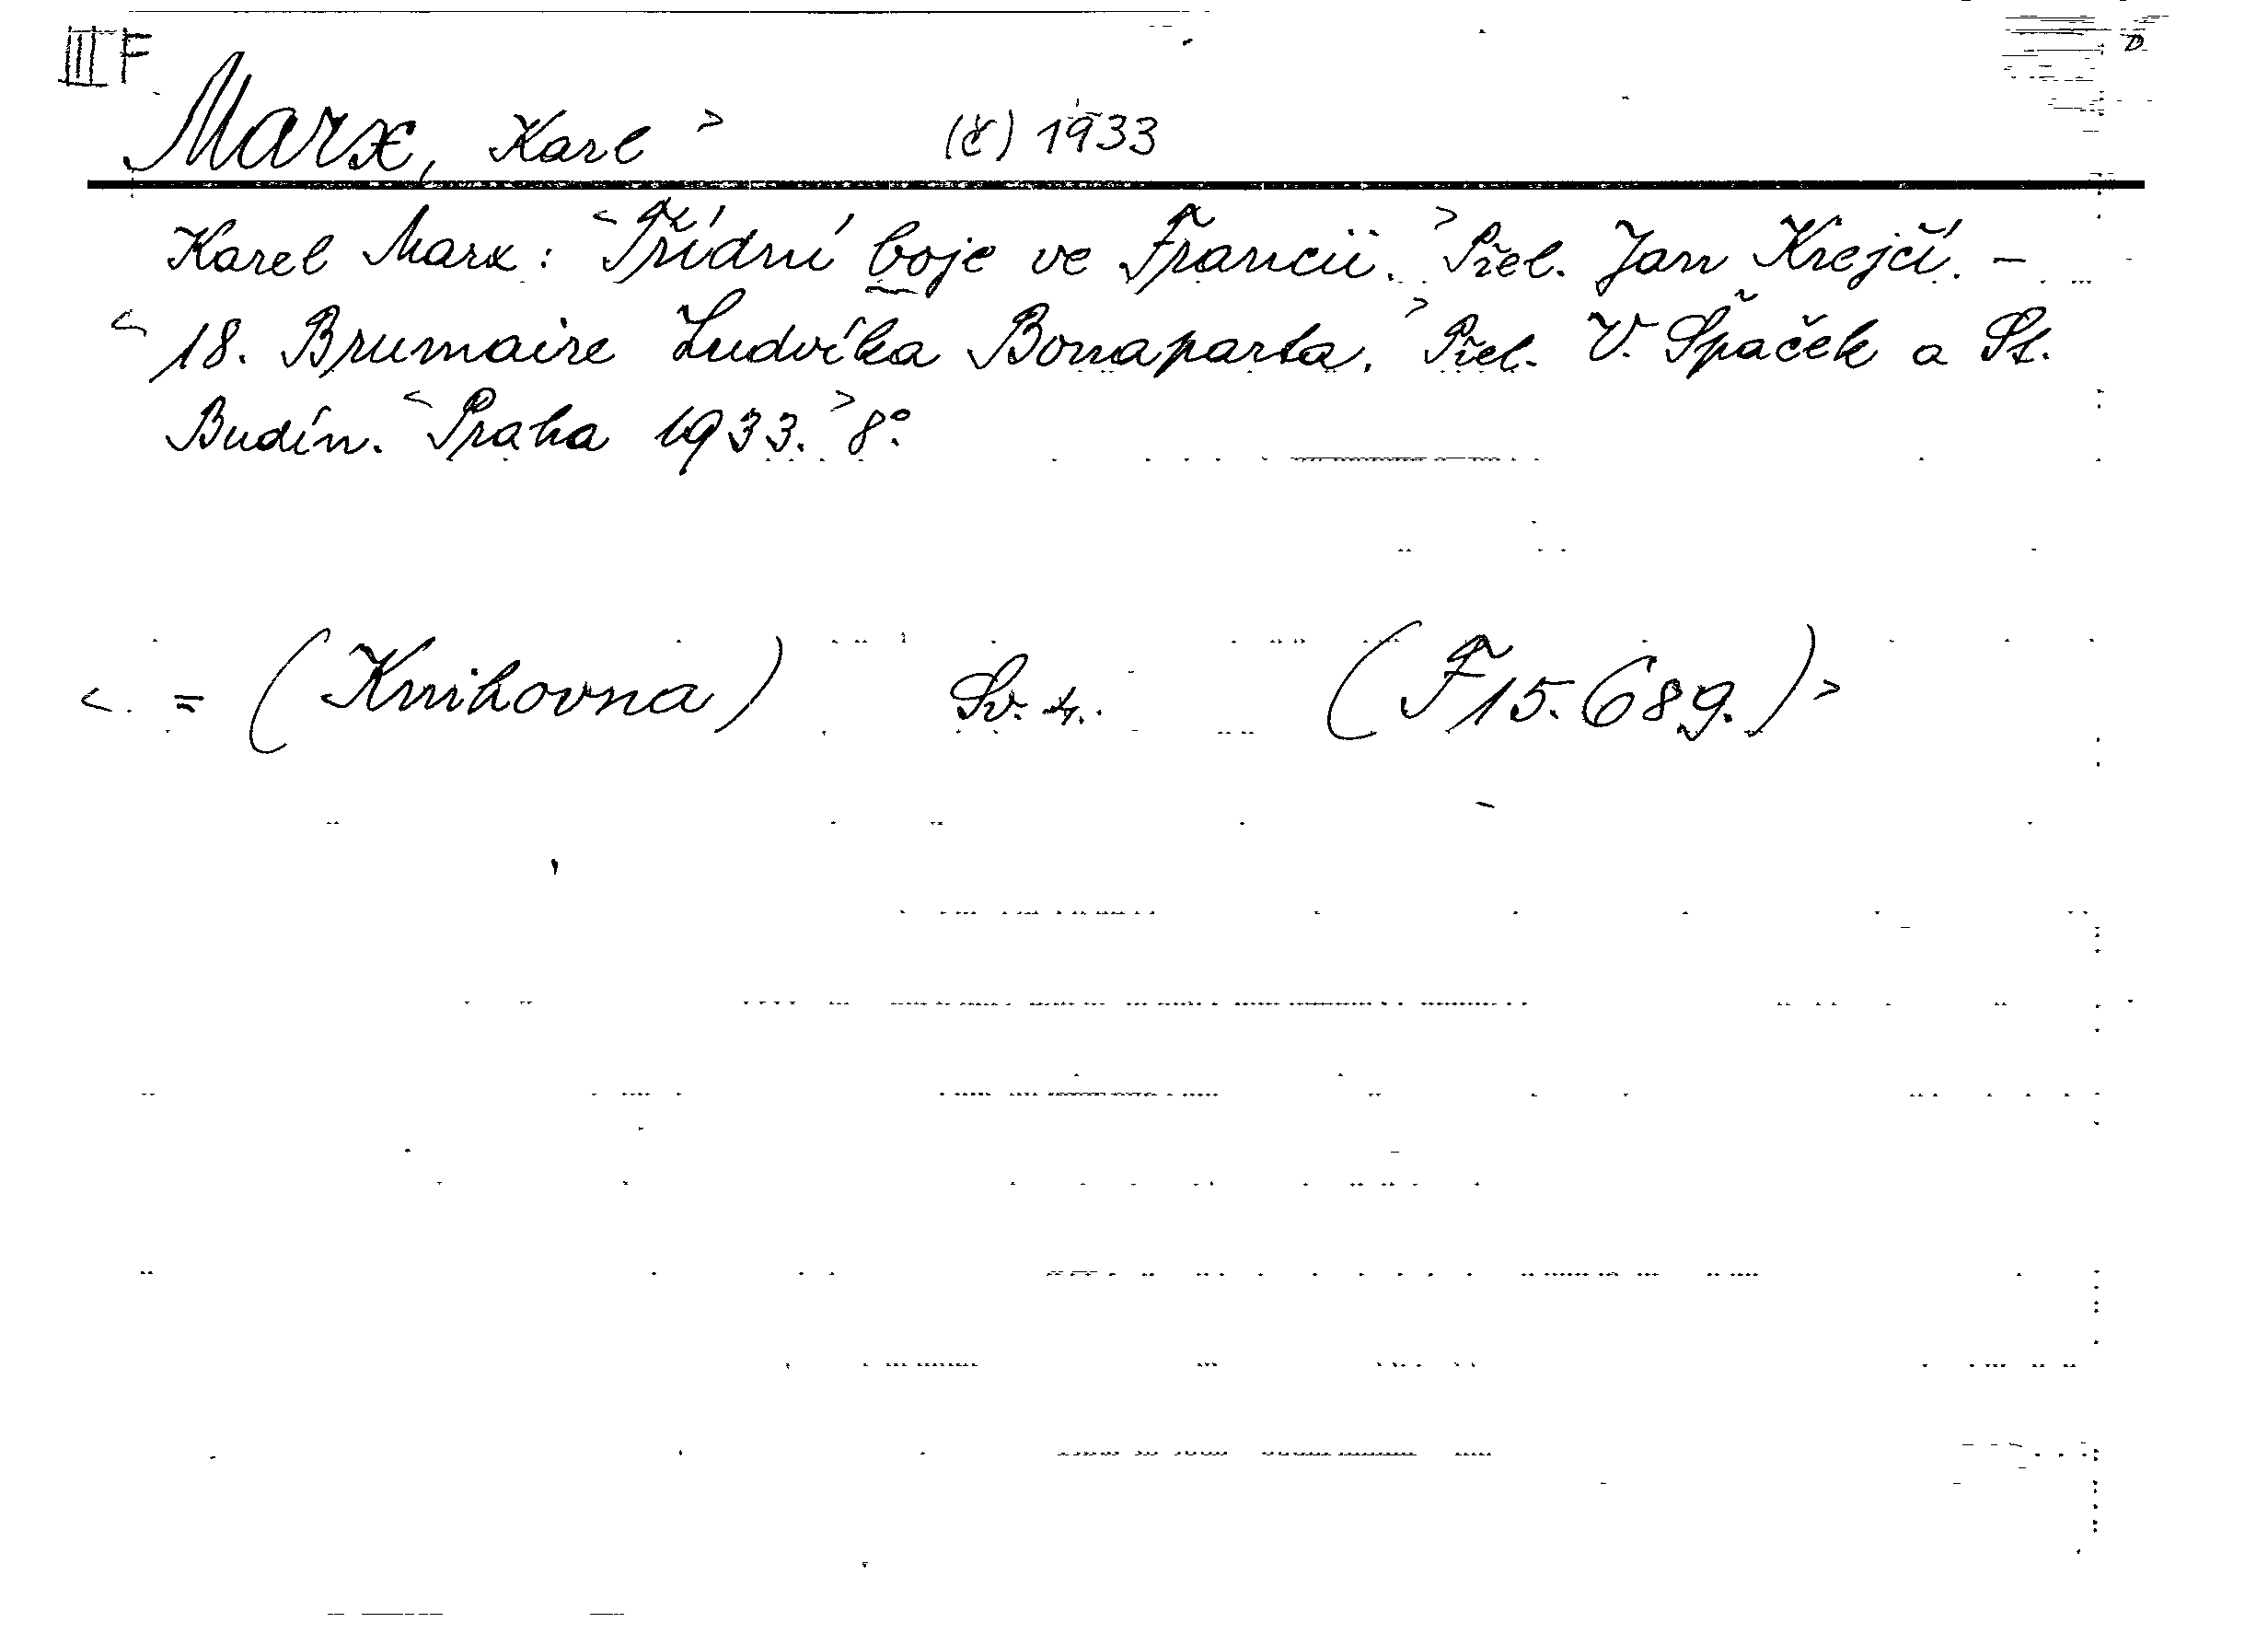 III F
Marx, Karl > (č) 1933
Karel Marx: <Třídní boje ve Francii.> Přel. Jan Krejčí. –
<18. Brumaire Ludvíka Bonaparta.> Přel. V. Špaček a St.
Budín. <Praha 1933.> 8°.
< = (Knihovna) Sv. 4. (F 15.689.) >